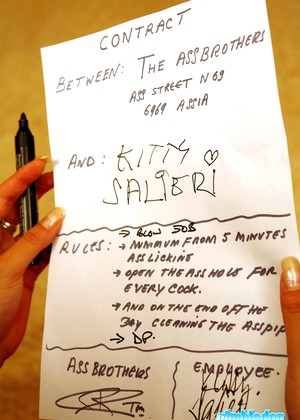 CONTRACT
BETWEEN: THE ASSBROTHERS
ASS STREET N 69
6969 ASSIA
AND: KITTY
SALIERI
RULES: → BLOW JOB
→ MINIMUM FROM 5 MINUTES
ASSLICKING
→ OPEN THE ASSHOLE FOR
EVERY COCK.
→ AND ON THE END OFF THE
JOB CLEANING THE ASS
→ DP.
ASSBROTHERS
EMPLOYEE.